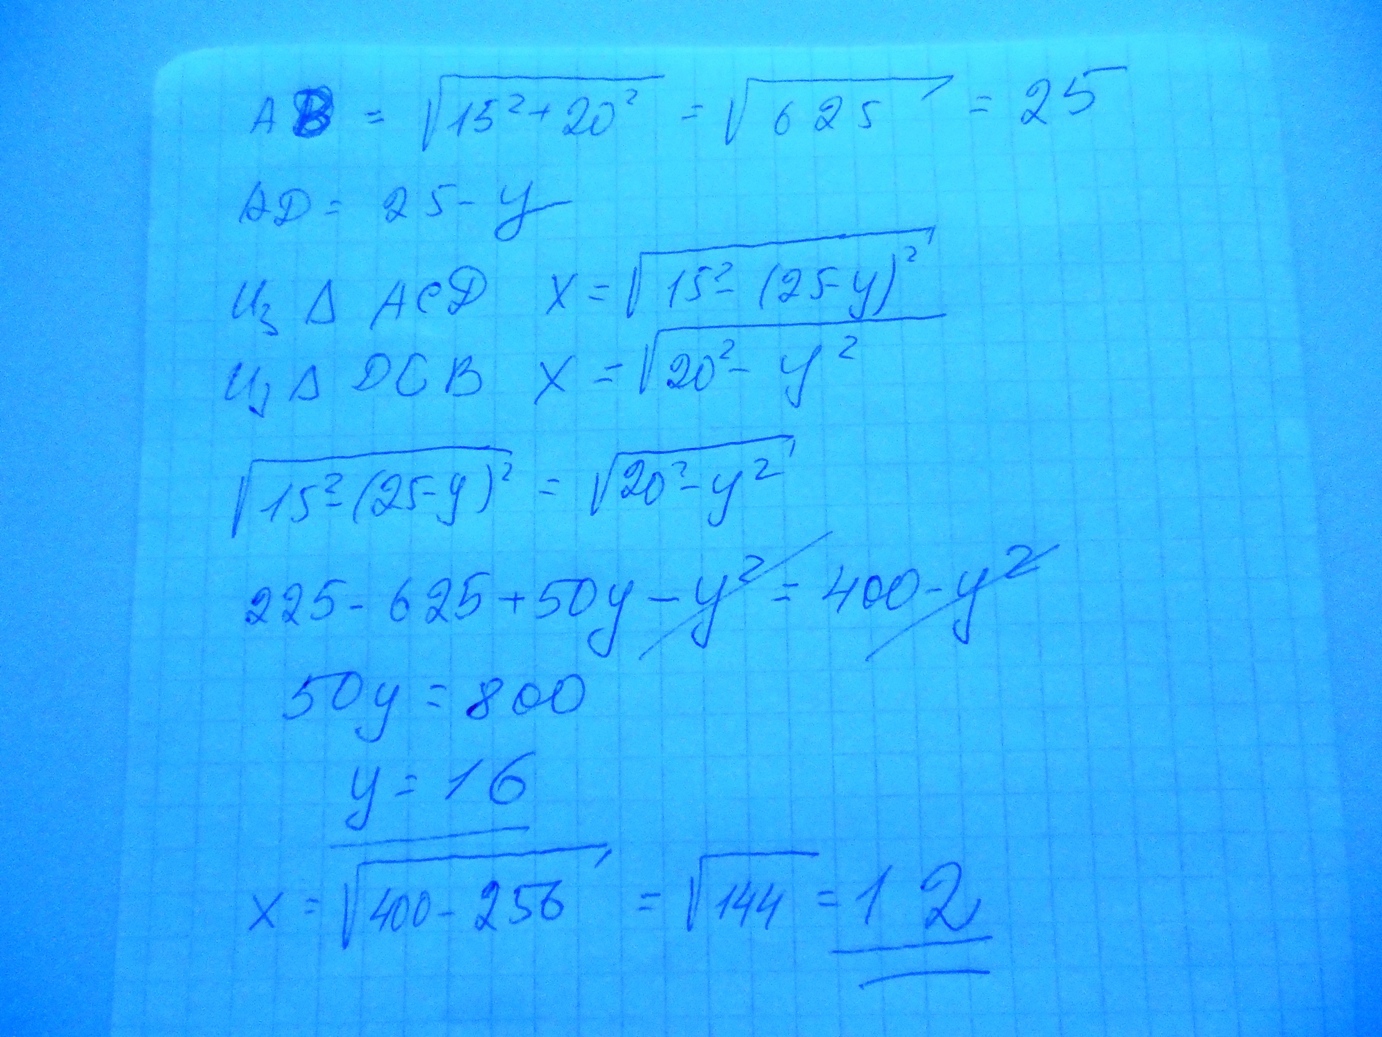 AB = √15²+20² = √625 = 25
AD = 25-y
Из Δ ACD x = √15²-(25-y)²
Из Δ DCB x = √20²-y²
√15²-(25-y)² = √20²-y²
225-625+50y-y² = 400-y²
50y = 800
y = 16
x = √400-256 = √144 = 12